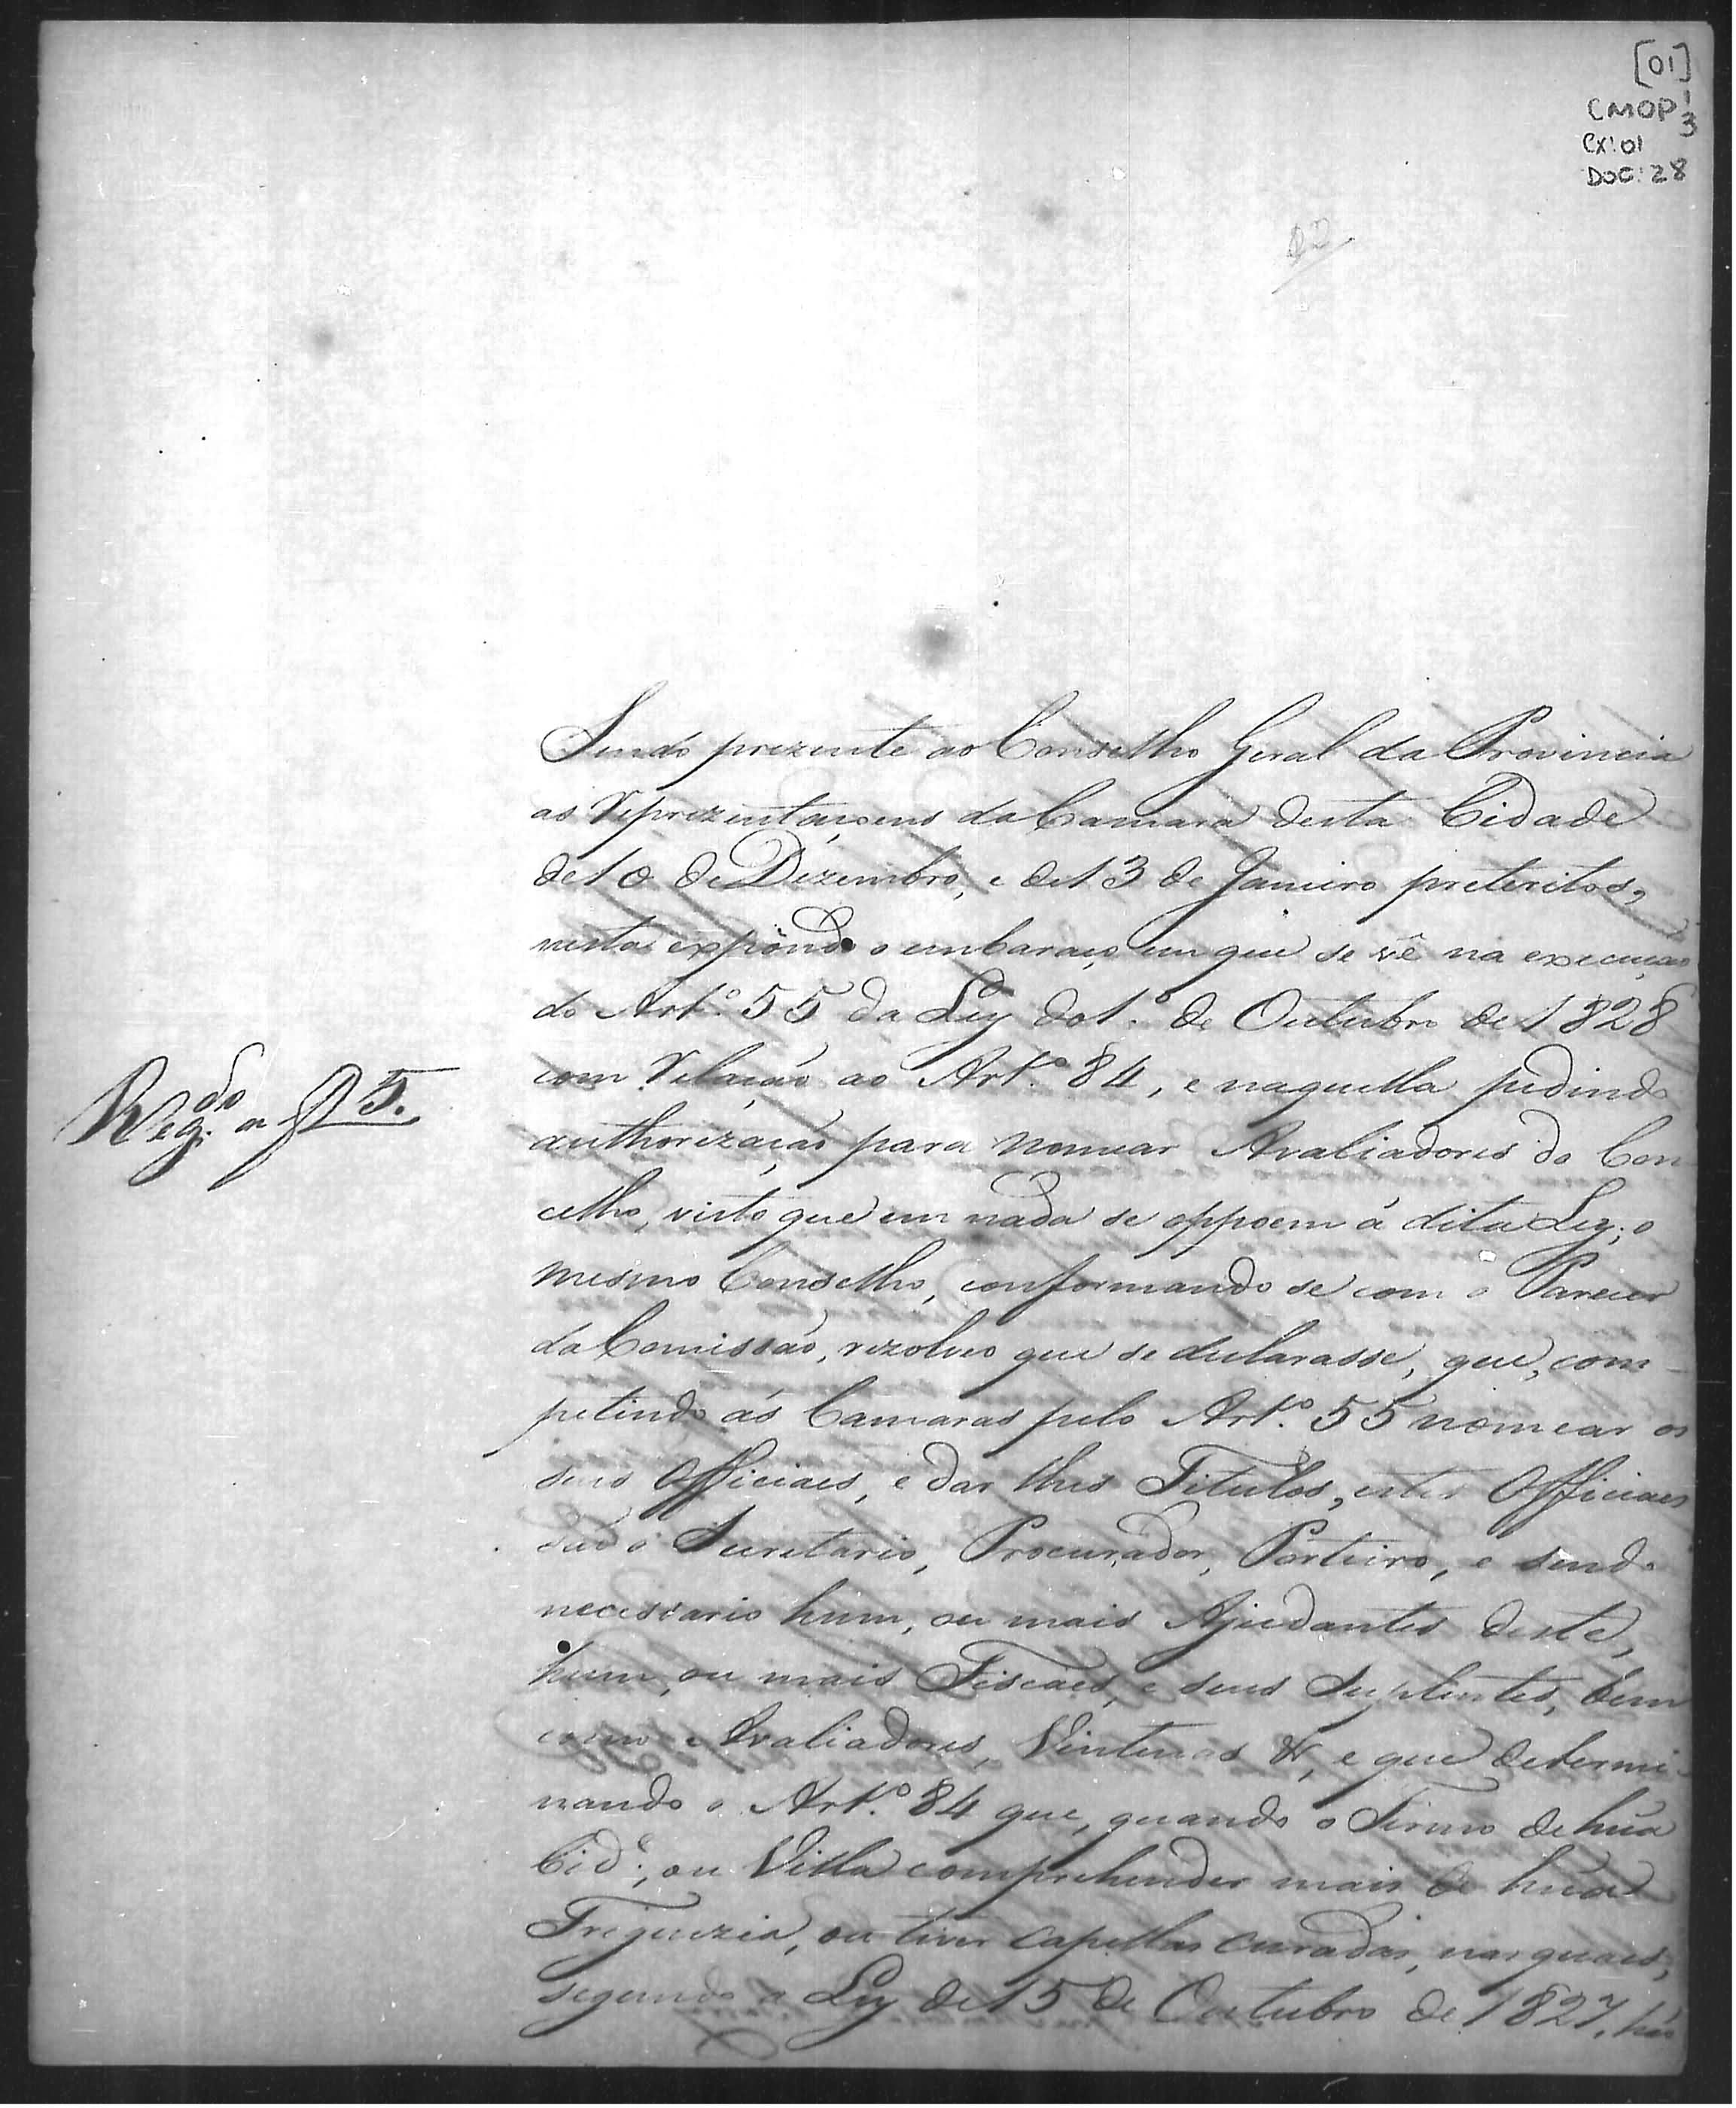 [01]
CMOP 1
3
CX: 01
DOC: 28
Sendo prezente ao Conselho Geral da Provincia
as Reprezentaçoens da Camara desta Cidade
de 10 de Dezembro, e de 13 de Janeiro preteritos,
nesta expondo o embaraço, em que se vê na execução
do Art.º 55 da Ley do 1.º de Outubro de 1828
com Relação ao Art.º 84, e naquella pedindo
Reg.do a f 5.
authorização para nomear Avaliadores do Con
celho, visto que em nada se oppoem á dita Ley; o
mesmo Conselho, conformando se com o Parecer
da Comissão, rezolveo que se declarasse, que, com-
petindo ás Camaras pelo Art.º 55 nomear os
seus Officiaes, e dar lhes Titulos, estes Officiaes
são o Secretario, Procurador, Porteiro, e sendo
necessario hum, ou mais Ajudantes deste,
hum, ou mais Fiscaes, e seus Suplentes, bem
como Avaliadores, Vintenas &, e que determi-
nando o Art.º 84 que, quando o Termo de hũa
Cid.e, ou Villa comprehender mais de hũa
Freguezia, ou tiver capellas curadas, nas quaes,
segundo a Ley de 15 de Outubro de 1827, há